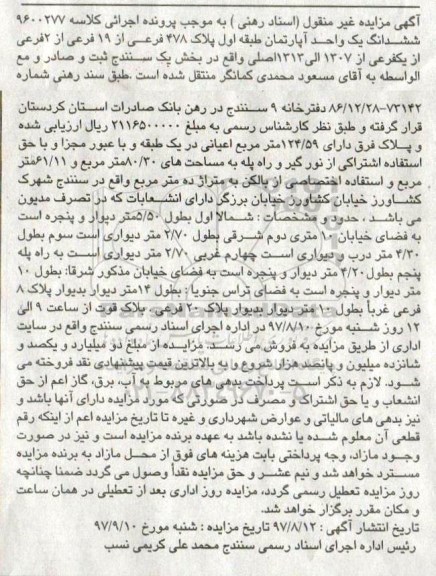 آگهی مزایده غیر منقول (اسناد رهنی ) به موجب پرونده اجرائی کلاسه ۹۶۰۰۲۷۷
ششدانگ یک واحد آپارتمان طبقه اول پلاک ۴۷۸ فرعی از ۱۹ فرعی از ۲فرعی
از یکفرعی از ۱۳۰۷ الی۱۳۱۳اصلی واقع در بخش یک سنندج ثبت و صادر و مع
الواسطه به آقای مسعود محمدی کمانگر منتقل شده است .طبق سند رهنی شماره
۷۳۱۴۲–۸۶/۱۲/۲۸ دفترخانه ۹ سنندج در رهن بانک صادرات استان کردستان
قرار گرفته و طبق نظر کارشناس رسمی به مبلغ ۲۱۱۶۵۰۰۰۰۰ ریال ارزیابی شده
و پلاک فرق دارای ۱۲۴/۵۹متر مربع اعیانی در یک طبقه و با عبور مجزا و با حق
استفاده اشتراکی از نور گیر و راه پله به مساحت های ۸۰/۳۰متر مربع و ۶۱/۱۱متر
مربع و استفاده اختصاصی از بالکن به متراژ ده متر مربع واقع در سنندج شهرک
کشاورز خیابان کشاورز خیابان برزگر دارای انشعابات که در تصرف مدیون
می باشد . حدود و مشخصات : شمالا اول بطول ۵/۵۰متر دیوار و پنجره است
به فضای خیابان ۱۰ متری دوم شرقی بطول ۲/۷۰ متر دیواری است سوم بطول
۴/۳۰ متر درب و دیواری است چهارم غربی ۲/۷۰ متر دیواری است به راه پله
پنجم بطول ۴/۲۰ متر دیوار و پنجره است به فضای خیابان مذکور شرقا: بطول ۱۰
متر دیوار و پنجره است به فضای تراس جنوبا : بطول ۱۴متر دیوار بدیوار پلاک ۸
فرعی غرباً بطول ۱۰ متر دیوار بدیوار پلاک ۲۰ فرعی . پلاک فوت از ساعت ۹ الی
۱۲ روز شنبه مورخ ۹۷/۸/۱۰ در اداره اجرای اسناد رسمی سنندج واقع در سایت
اداری از طریق مزایده به فروش می رسد. مزایده از مبلغ دو میلیارد و یکصد و
شانزده میلیون و پانصد هزار شروع و به بالاترین قیمت پیشنهادی نقد فروخته می
شود. لازم به ذکر است پرداخت بدهی های مربوط به آب، برق، گاز اعم از حق
انشعاب و یا حق اشتراک و مصرف در صورتی که مورد مزایده دارای آنها باشد و
نیز بدهی های مالیاتی و عوارض شهرداری و غیره تا تاریخ مزایده اعم از اینکه رقم
قطعی آن معلوم شده یا نشده باشد به عهده برنده مزایده است و نیز در صورت
وجود مازاد، وجه پرداختی بابت هزینه های فوق از محل مازاد به برنده مزایده
مسترد خواهد شد و نیم عشر و حق مزایده نقداً وصول می گردد ضمنا چنانچه
روز مزایده تعطیل رسمی گردد، مزایده روز اداری بعد از تعطیلی در همان ساعت
و مکان مقرر برگزار خواهد شد.
تاریخ انتشار آگهی : ۹۷/۸/۱۲ تاریخ مزایده : شنبه مورخ ۹۷/۹/۱۰
رئیس اداره اجرای اسناد رسمی سنندج محمد علی کریمی نسب